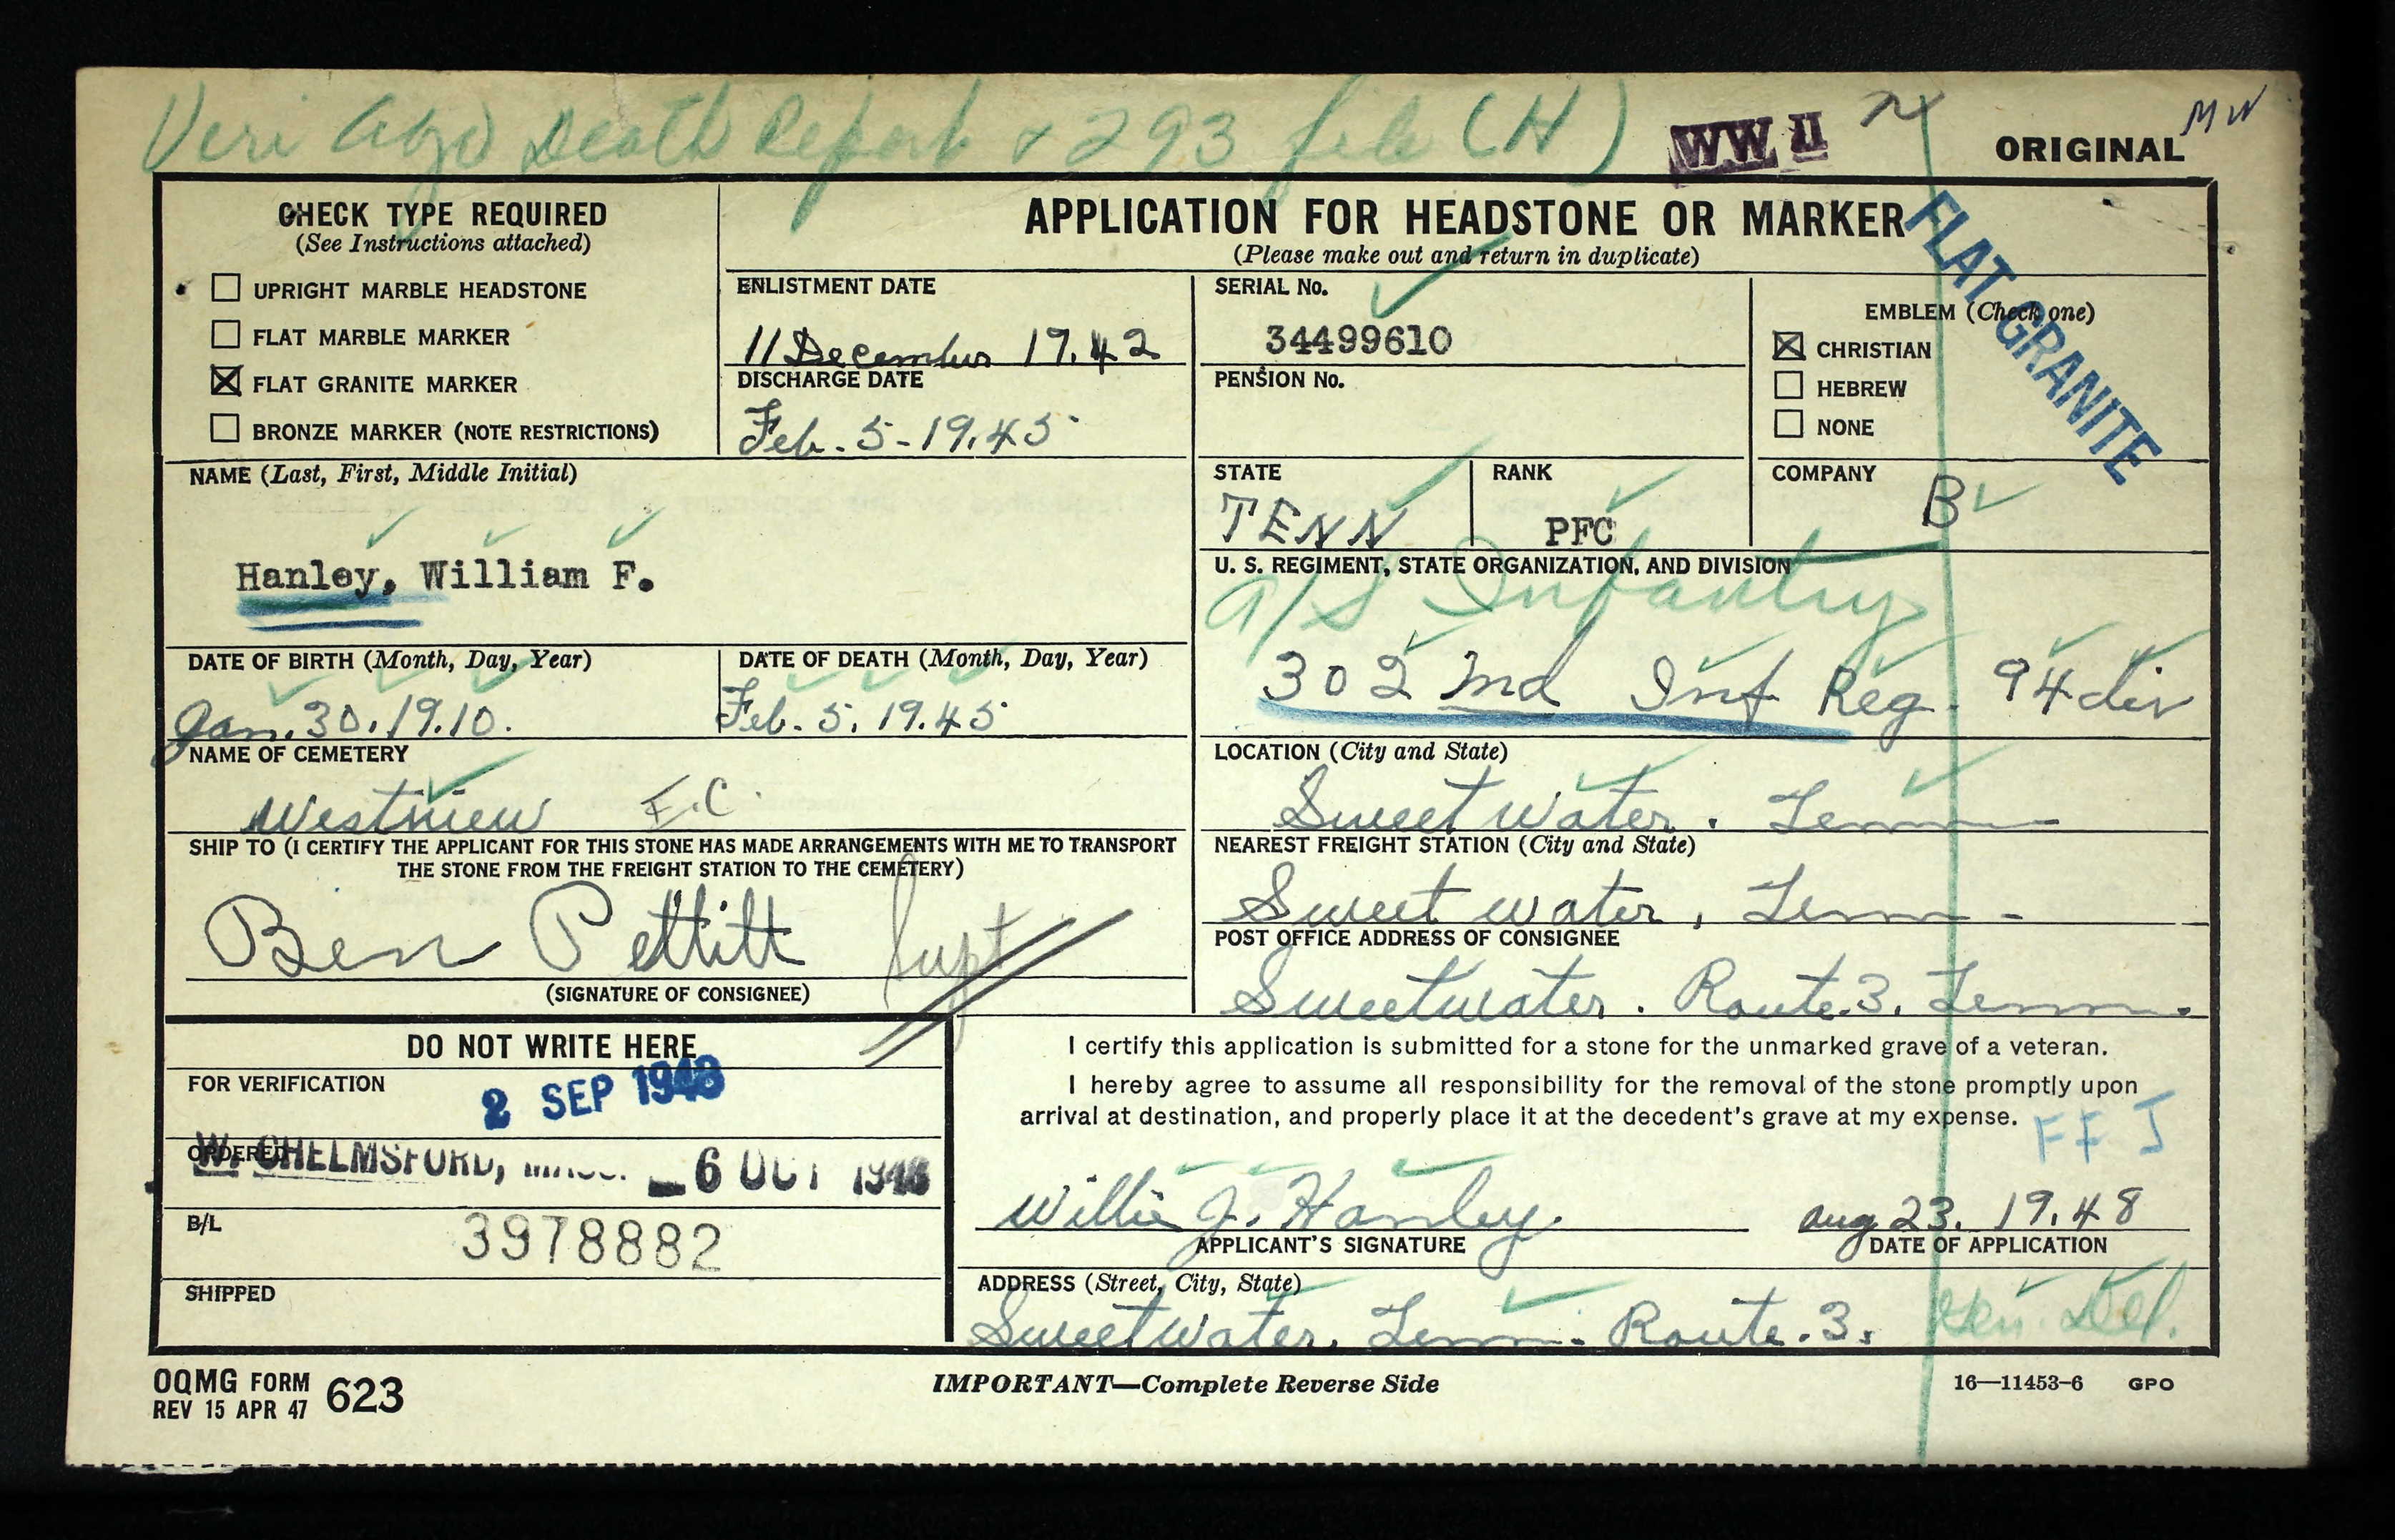 Veri Ago Death Report & 293 file (H)
WW II
MW
ORIGINAL
CHECK TYPE REQUIRED
(See Instructions attached)
☐ UPRIGHT MARBLE HEADSTONE
☐ FLAT MARBLE MARKER
☒ FLAT GRANITE MARKER
☐ BRONZE MARKER (NOTE RESTRICTIONS)
APPLICATION FOR HEADSTONE OR MARKER
(Please make out and return in duplicate)
FLAT GRANITE
ENLISTMENT DATE
11 December 19.42
DISCHARGE DATE
Feb. 5-19.45
SERIAL No.
34499610
PENSION No.
EMBLEM (Check one)
☒ CHRISTIAN
☐ HEBREW
☐ NONE
NAME (Last, First, Middle Initial)
Hanley, William F.
STATE
TENN
RANK
PFC
COMPANY
B
U. S. REGIMENT, STATE ORGANIZATION, AND DIVISION
a/s Infantry
302 nd Inf Reg. 94 div
DATE OF BIRTH (Month, Day, Year)
Jan. 30. 19.10.
DATE OF DEATH (Month, Day, Year)
Feb. 5. 19.45
NAME OF CEMETERY
Westview E.C.
LOCATION (City and State)
Sweet Water. Tenn
SHIP TO (I CERTIFY THE APPLICANT FOR THIS STONE HAS MADE ARRANGEMENTS WITH ME TO TRANSPORT
THE STONE FROM THE FREIGHT STATION TO THE CEMETERY)
Ben Pettitt Supt
(SIGNATURE OF CONSIGNEE)
NEAREST FREIGHT STATION (City and State)
Sweet water, Tenn-
POST OFFICE ADDRESS OF CONSIGNEE
Sweetwater. Route.3. Tenn.
DO NOT WRITE HERE
FOR VERIFICATION
2 SEP 1948
ORDERED
W. CHELMSFORD, MASS. 6 OCT 1948
B/L
3978882
SHIPPED
I certify this application is submitted for a stone for the unmarked grave of a veteran.
I hereby agree to assume all responsibility for the removal of the stone promptly upon
arrival at destination, and properly place it at the decedent's grave at my expense.
FFJ
Willie J. Hanley.
APPLICANT'S SIGNATURE
aug 23. 19.48
DATE OF APPLICATION
ADDRESS (Street, City, State)
Sweetwater, Tenn. Route.3. Gen. Del.
OQMG FORM 623
REV 15 APR 47
IMPORTANT—Complete Reverse Side
16—11453-6 GPO